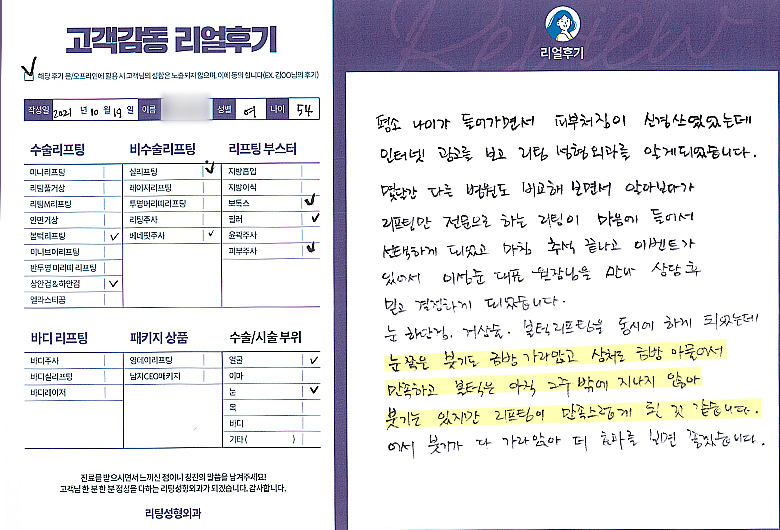 고객감동 리얼후기
해당 후기 온/오프라인에 활용 시 고객님의 성함은 노출되지 않으며, 이에 동의 합니다(EX. 김OO님의 후기)
작성일 2021 년 10 월 19 일 이름 성별 여 나이 54
수술리프팅 비수술리프팅 리프팅 부스터
미니리프팅 실리프팅 지방흡입
리팅풀거상 레이저리프팅 지방이식
리팅M리프팅 투명머리띠리프팅 보톡스
안면거상 리팅주사 필러
볼턱리프팅 베네핏주사 윤곽주사
미니브이리프팅 피부주사
반투명 머리띠 리프팅
상안검&하안검
엘라스티꿈
바디 리프팅 패키지 상품 수술/시술 부위
바디주사 영데이리프팅 얼굴
바디실리프팅 남자CEO패키지 이마
바디레이저 눈
목
바디
기타 ( )
진료를 받으시면서 느끼신 점이나 칭찬의 말씀을 남겨주세요!
고객님 한 분 한 분 정성을 다하는 리팅성형외과가 되겠습니다. 감사합니다.
리팅성형외과
Review
리얼후기
평소 나이가 들어가면서 피부처짐이 신경쓰였었는데
인터넷 광고를 보고 리팅 성형외과를 알게되었습니다.
몇달간 다른 병원도 비교해 보면서 알아보다가
리프팅만 전문으로 하는 리팅이 마음에 들어서
선택하게 되었고 마침 추석 끝나고 이벤트가
있어서 이성준 대표 원장님을 만나 상담 후
믿고 결정하게 되었습니다.
눈 하안검, 거상술, 볼턱리프팅을 동시에 하게 되었는데
눈쪽은 붓기도 금방 가라앉고 상처도 금방 아물어서
만족하고 볼턱은 아직 2주 밖에 지나지 않아
붓기는 있지만 리프팅이 만족스럽게 된 것 같습니다.
어서 붓기가 다 가라앉아 더 효과를 보면 좋겠습니다.